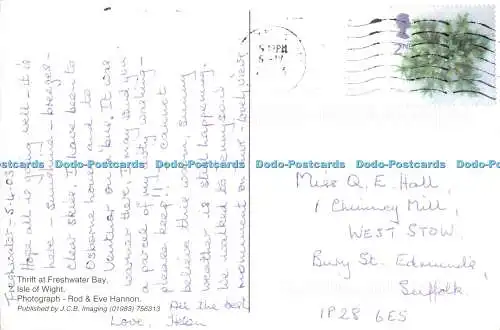 Freshwater - 5.4.03
Hope all is going well - it is
here - sunshine - breezes -
clear skies. I have been to
Osborne house and to
Ventnor on a bus. It was
warmer there. I may send you
a parcel of my dirty washing -
please keep!! I cannot
believe this warm, sunny
weather is still happening.
We walked to Tennyson's
monument on - lovely views
All the best
Love, Helen
5 PM
2ND
Miss Q. E. Hall,
1 Chimney Mill,
WEST STOW.
Bury St. Edmunds,
Suffolk
IP28 6ES
Thrift at Freshwater Bay,
Isle of Wight.
Photograph - Rod & Eve Hannon.
Published by J.C.B. Imaging (01983) 756313
Dodo-Postcards Dodo-Postcards Dodo-Postcards Dodo-Postcards Dodo-Postcards